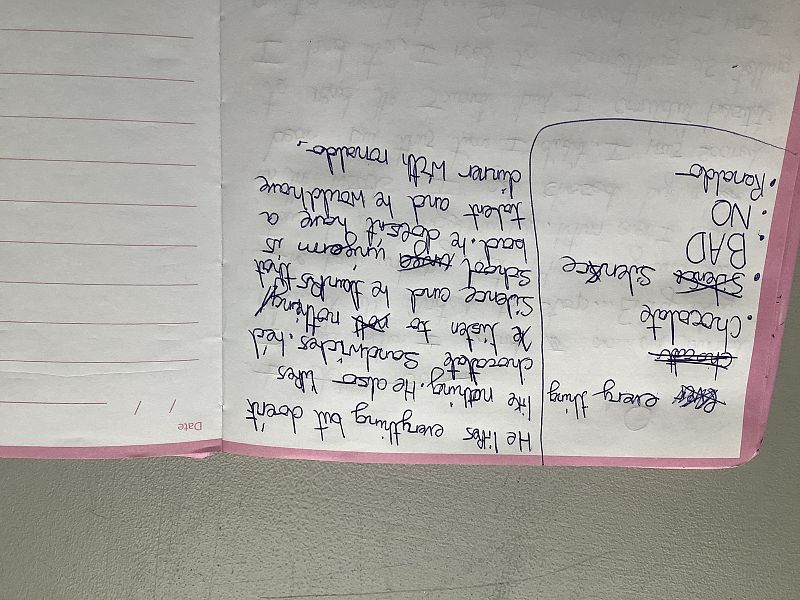 every thing
Chocolate
Silence
BAD
NO
Ronaldo
He likes everything but doesn't
like nothing. He also likes
chocolate Sandwiches. hed
listen to nothing/
Silence and he thanks that
School ungerm is
bad. he doesn't have a
talent and he would have
dinner with ronaldo.
Date
/ /